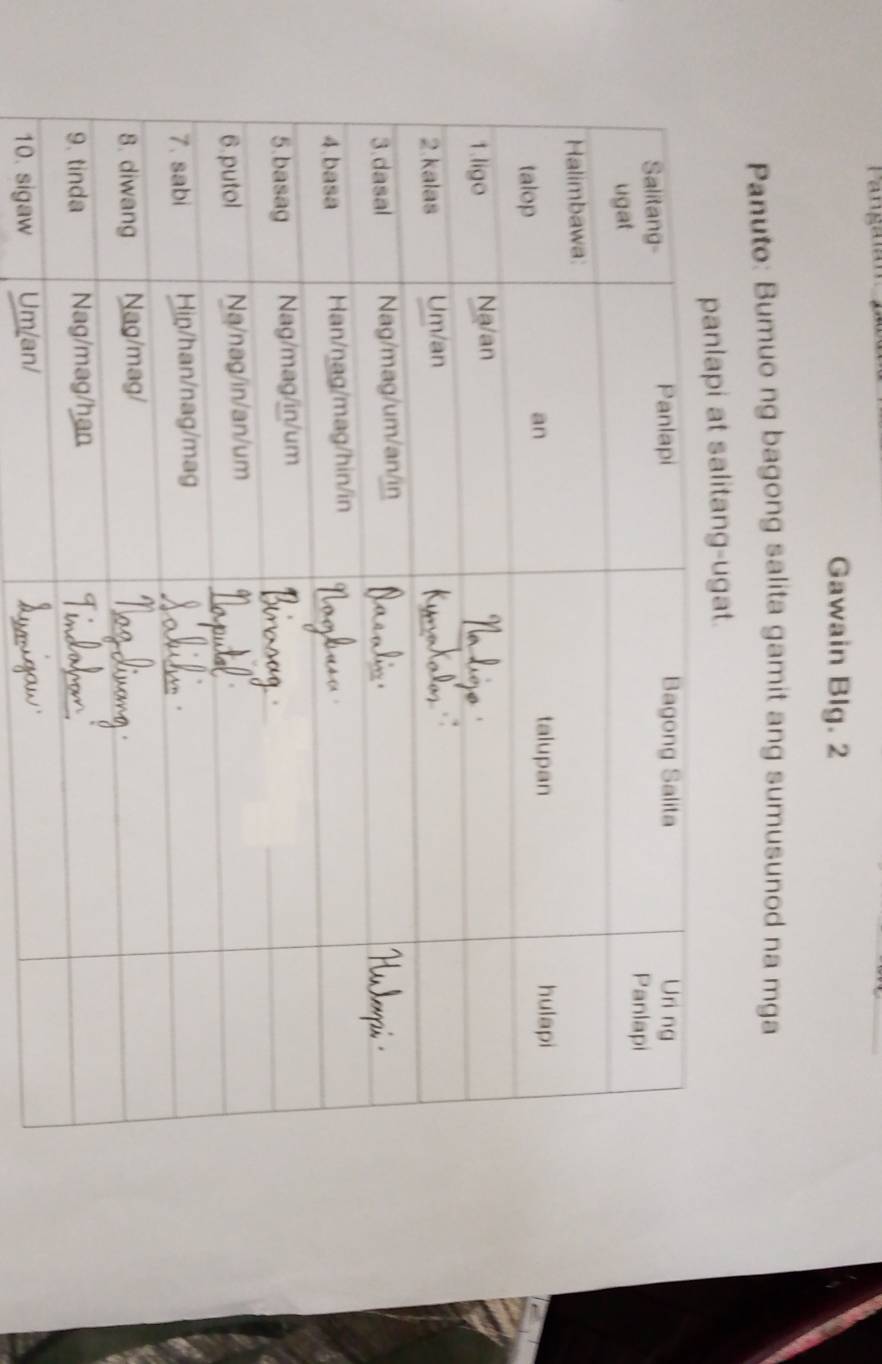 Gawain Blg. 2
Panuto: Bumuo ng bagong salita gamit ang sumusunod na mga
panlapi at salitang-ugat.
Salitang-ugat Panlapi Bagong Salita Uri ng Panlapi
Halimbawa:
talop an talupan hulapi
1.ligo Na/an Naligo.
2.kalas Um/an Kumakalas.
3.dasal Nag/mag/um/an/in Dasalin. Hulapi.
4.basa Han/nag/mag/hin/in Nagbasa.
5.basag Nag/mag/in/um Binasag.
6.putol Na/nag/in/an/um Naputol.
7. sabi Hin/han/nag/mag Sabihin.
8. diwang Nag/mag/ Nagdiwang.
9. tinda Nag/mag/han Tindahan
10. sigaw Um/an/ Sumigaw.